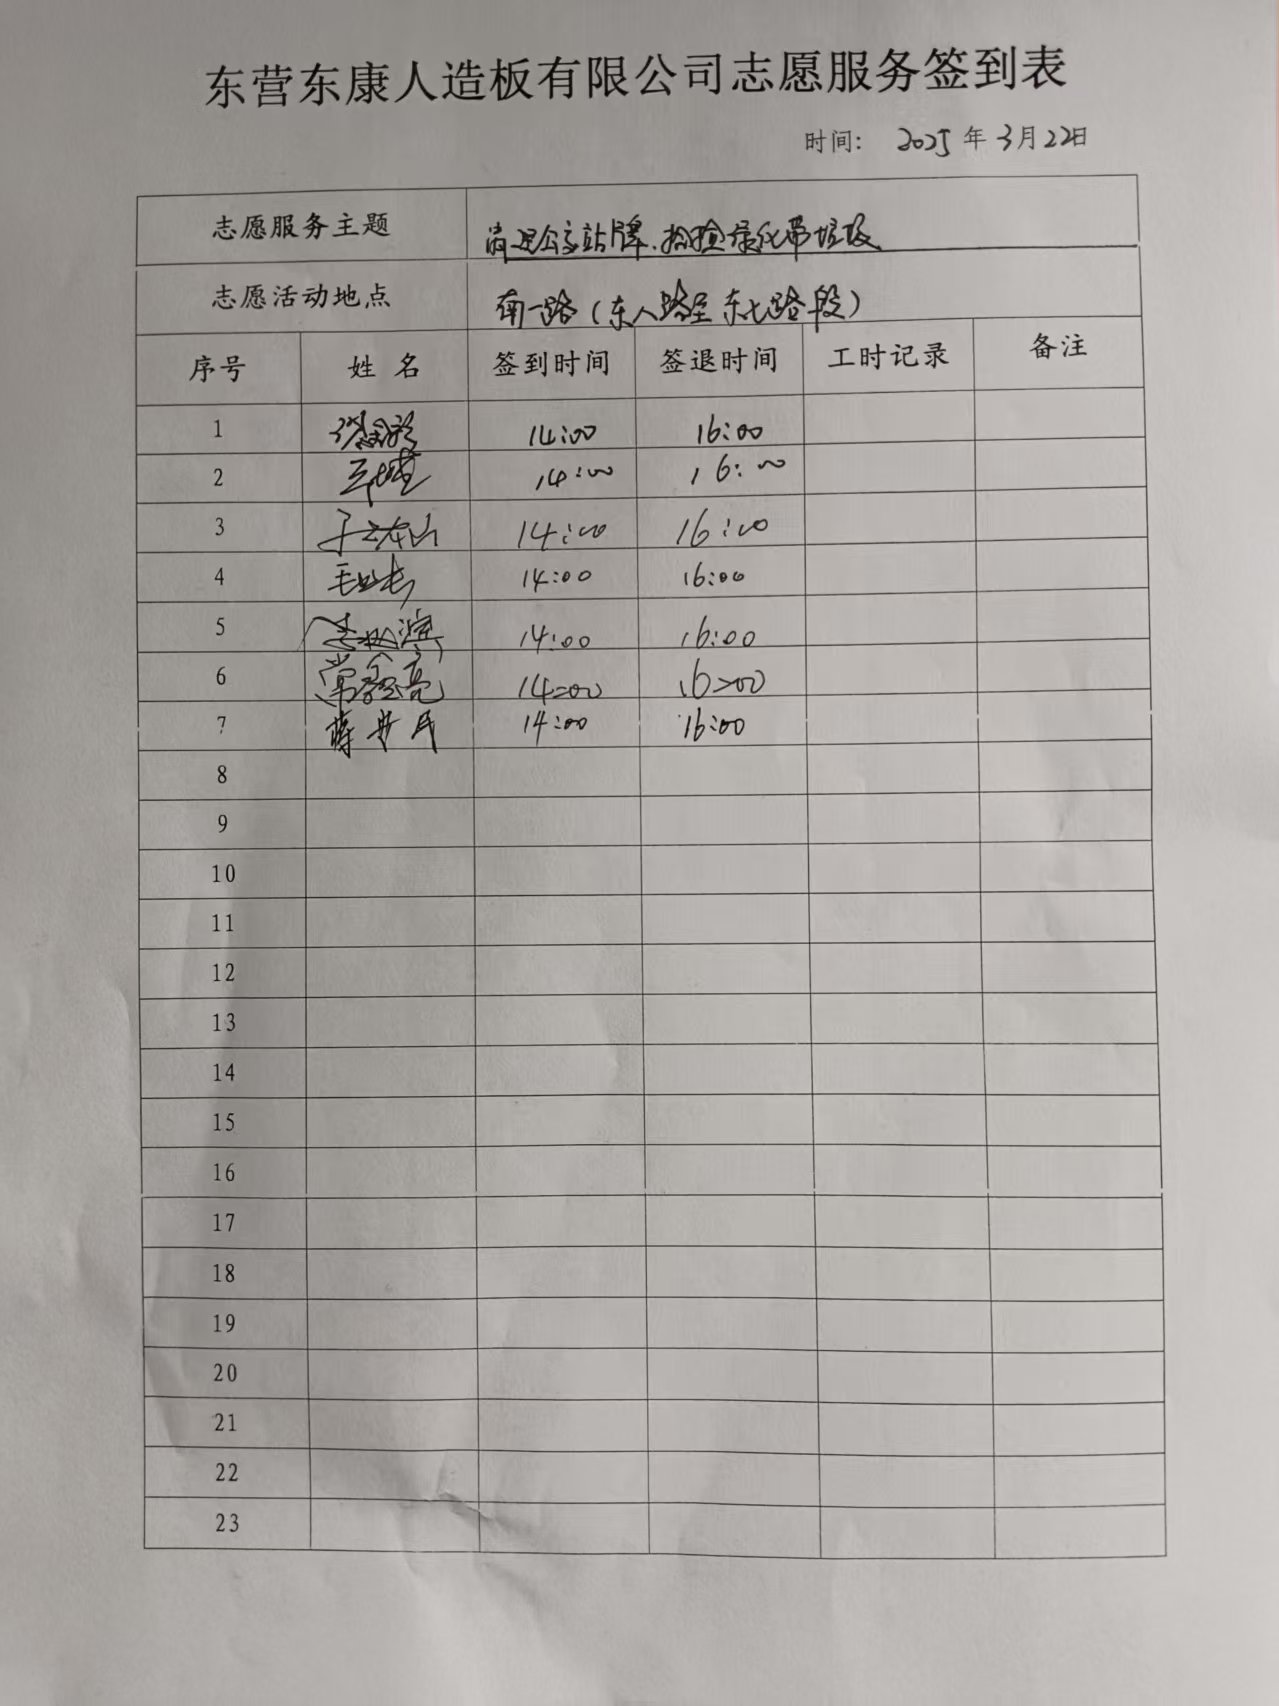 东营东康人造板有限公司志愿服务签到表
时间: 2025年3月22日
志愿服务主题 清理公交站牌.捡拾绿化带垃圾
志愿活动地点 南一路(东八路至东七路段)
序号 姓名 签到时间 签退时间 工时记录 备注
1 14:00 16:00
2 14:00 16:00
3 14:00 16:00
4 14:00 16:00
5 14:00 16:00
6 常鑫亮 14:00 16:00
7 14:00 16:00
8
9
10
11
12
13
14
15
16
17
18
19
20
21
22
23